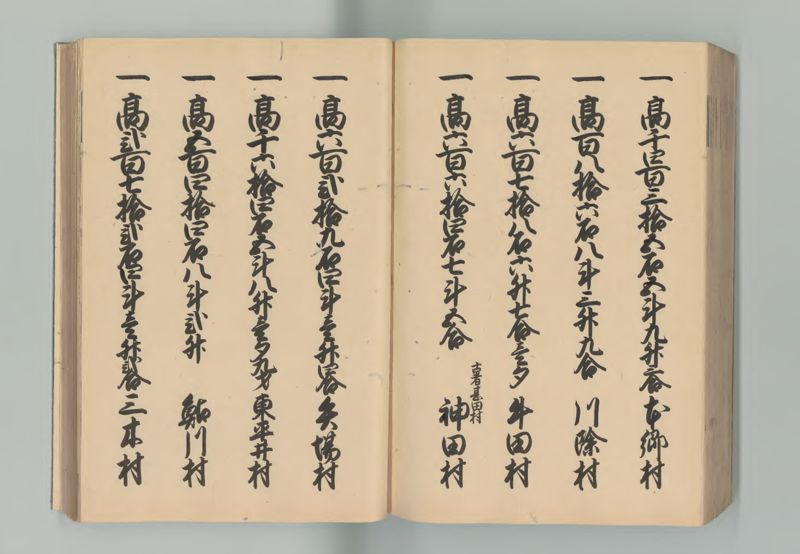 一 高千三百三拾五石五斗九升六合 本郷村
一 高百八拾六石八斗三升九合 川除村
一 高六百七拾八石六升七合壱夕 牛田村
古者甚田村
一 高六百六拾四石七斗五合 神田村
一 高六百弐拾九石四斗壱升四合 矢場村
一 高千六拾四石五斗八升壱夕九才 東平井村
一 高五百四拾四石八斗弐升 鮎川村
一 高弐百七拾弐石四斗壱升弐合 三本村